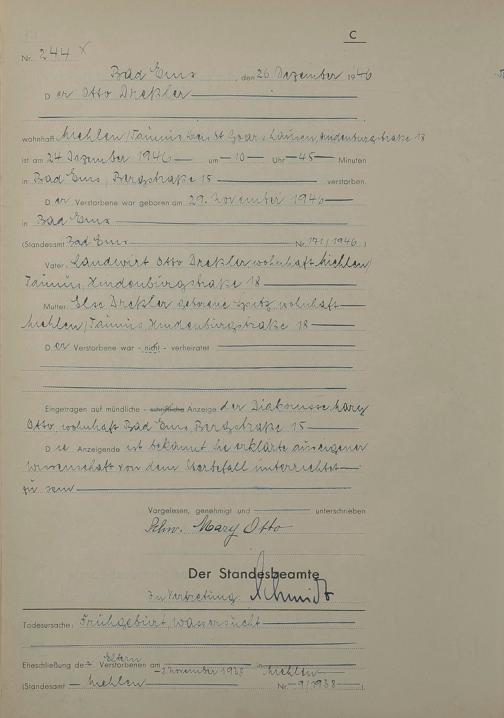 C
Nr. 244
Bad Ems, den 26 Dezember 1946
Der Otto Drexler
wohnhaft Miehlen, Taunus, Kreis St Goarshausen, Hindenburgstraße 18
ist am 24 Dezember 1946 um 10 Uhr 45 Minuten
in Bad Ems, Bergstraße 15 verstorben.
Der Verstorbene war geboren am 29. November 1946
in Bad Ems
(Standesamt Bad Ems Nr. 171/1946.)
Vater: Landwirt Otto Drexler wohnhaft Miehlen,
Taunus, Hindenburgstraße 18
Mutter: Else Drexler geborene Spitz, wohnhaft
Miehlen, Taunus, Hindenburgstraße 18
Der Verstorbene war - nicht - verheiratet
Eingetragen auf mündliche - schriftliche Anzeige der Diakonisse Mary
Otto, wohnhaft Bad Ems, Bergstraße 15
Die Anzeigende ist bekannt sie erklärte aus eigener
Wissenschaft von dem Sterbefall unterrichtet
zu sein
Vorgelesen, genehmigt und unterschrieben
Schw. Mary Otto
Der Standesbeamte
In Vertretung Schmidt
Todesursache: Frühgeburt, Wassersucht
Eheschließung der Eltern Verstorbenen am November 1938 in Miehlen
(Standesamt Miehlen Nr. 9/1938).